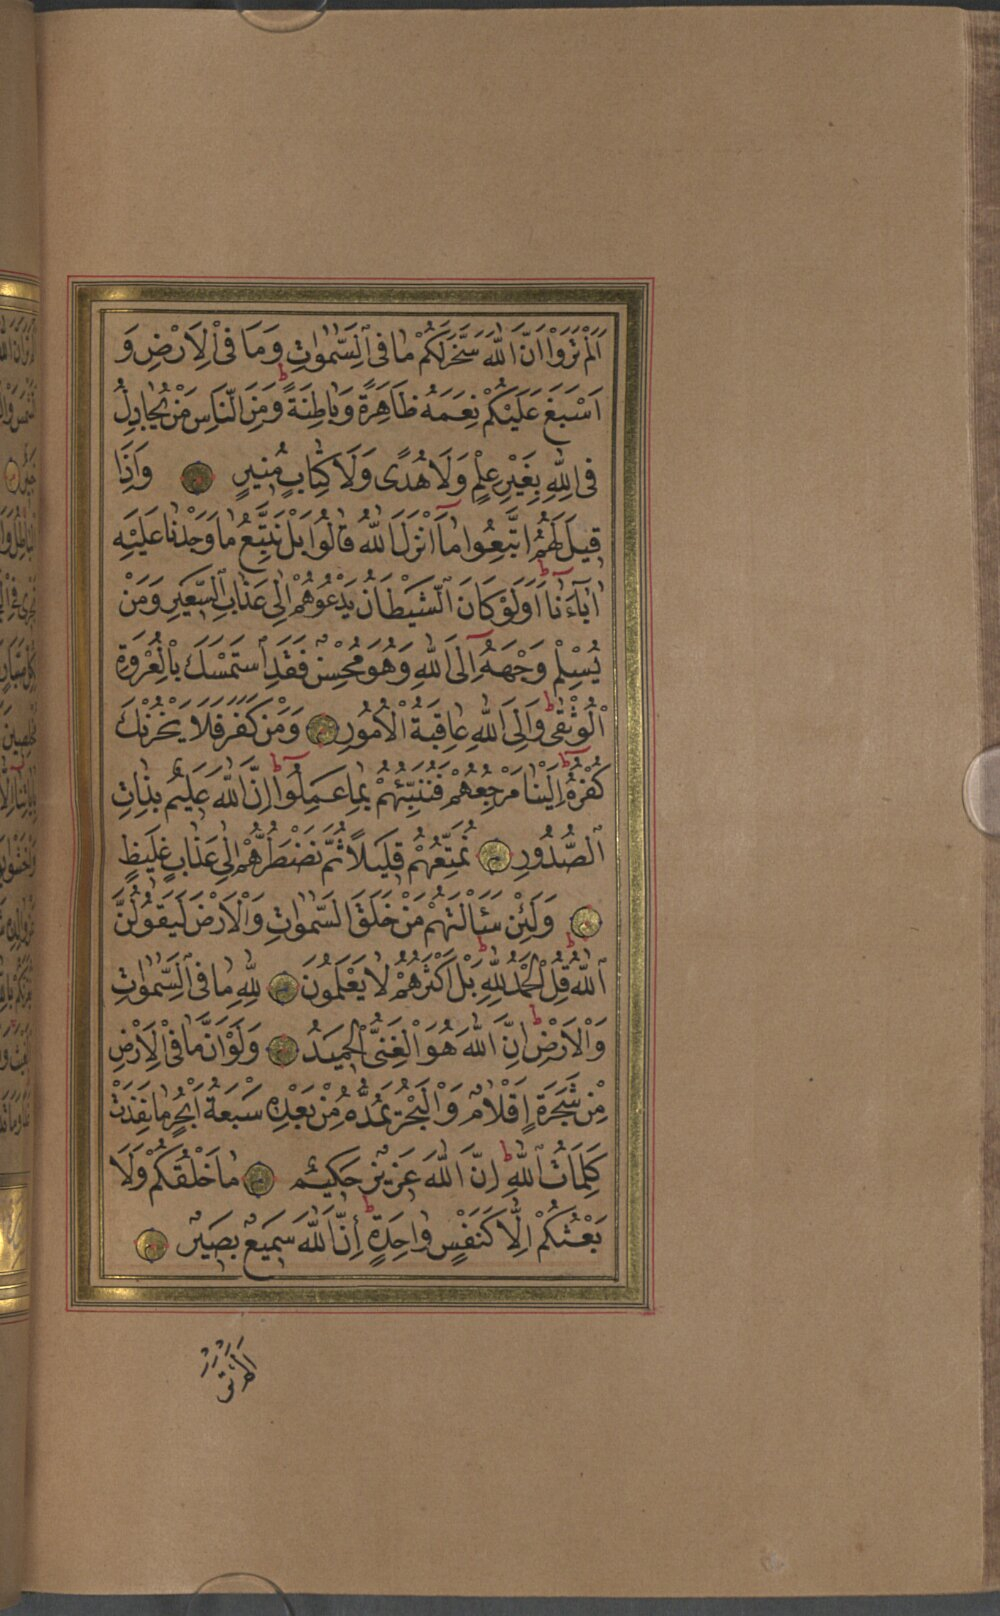 اَلَمْ تَرَوْا اَنَّ اللّٰهَ سَخَّرَ لَكُمْ مَا فِى السَّمٰوَاتِ وَمَا فِى الْاَرْضِ وَ
اَسْبَغَ عَلَيْكُمْ نِعَمَهُ ظَاهِرَةً وَبَاطِنَةً ط وَمِنَ النَّاسِ مَنْ يُجَادِلُ
فِى اللّٰهِ بِغَيْرِ عِلْمٍ وَلَا هُدًى وَلَا كِتَابٍ مُنِيرٍ وَاِذَا
قِيلَ لَهُمُ اتَّبِعُوا مَآ اَنْزَلَ اللّٰهُ قَالُوا بَلْ نَتَّبِعُ مَا وَجَدْنَا عَلَيْهِ
اٰبَآءَنَا ط اَوَلَوْ كَانَ الشَّيْطَانُ يَدْعُوهُمْ اِلٰى عَذَابِ السَّعِيرِ وَمَنْ
يُسْلِمْ وَجْهَهُٓ اِلَى اللّٰهِ وَهُوَ مُحْسِنٌ فَقَدِ اسْتَمْسَكَ بِالْعُرْوَةِ
الْوُثْقٰى ط وَاِلَى اللّٰهِ عَاقِبَةُ الْاُمُورِ وَمَنْ كَفَرَ فَلَا يَحْزُنْكَ
كُفْرُهُ ط اِلَيْنَا مَرْجِعُهُمْ فَنُنَبِّئُهُمْ بِمَا عَمِلُوا ط اِنَّ اللّٰهَ عَلِيمٌ بِذَاتِ
الصُّدُورِ نُمَتِّعُهُمْ قَلِيلًا ثُمَّ نَضْطَرُّهُمْ اِلٰى عَذَابٍ غَلِيظٍ
وَلَئِنْ سَئَالْتَهُمْ مَنْ خَلَقَ السَّمٰوَاتِ وَالْاَرْضَ لَيَقُولُنَّ
اللّٰهُ ط قُلِ الْحَمْدُ لِلّٰهِ ط بَلْ اَكْثَرُهُمْ لَا يَعْلَمُونَ لِلّٰهِ مَا فِى السَّمٰوَاتِ
وَالْاَرْضِ ط اِنَّ اللّٰهَ هُوَ الْغَنِىُّ الْحَمِيدُ وَلَوْ اَنَّ مَا فِى الْاَرْضِ
مِنْ شَجَرَةٍ اَقْلَامٌ وَالْبَحْرُ يَمُدُّهُ مِنْ بَعْدِهِ سَبْعَةُ اَبْحُرٍ مَا نَفِدَتْ
كَلِمَاتُ اللّٰهِ ط اِنَّ اللّٰهَ عَزِيزٌ حَكِيمٌ مَا خَلْقُكُمْ وَلَا
بَعْثُكُمْ اِلَّا كَنَفْسٍ وَاحِدَةٍ ط اِنَّ اللّٰهَ سَمِيعٌ بَصِيرٌ
اَلَمْ تَرَ